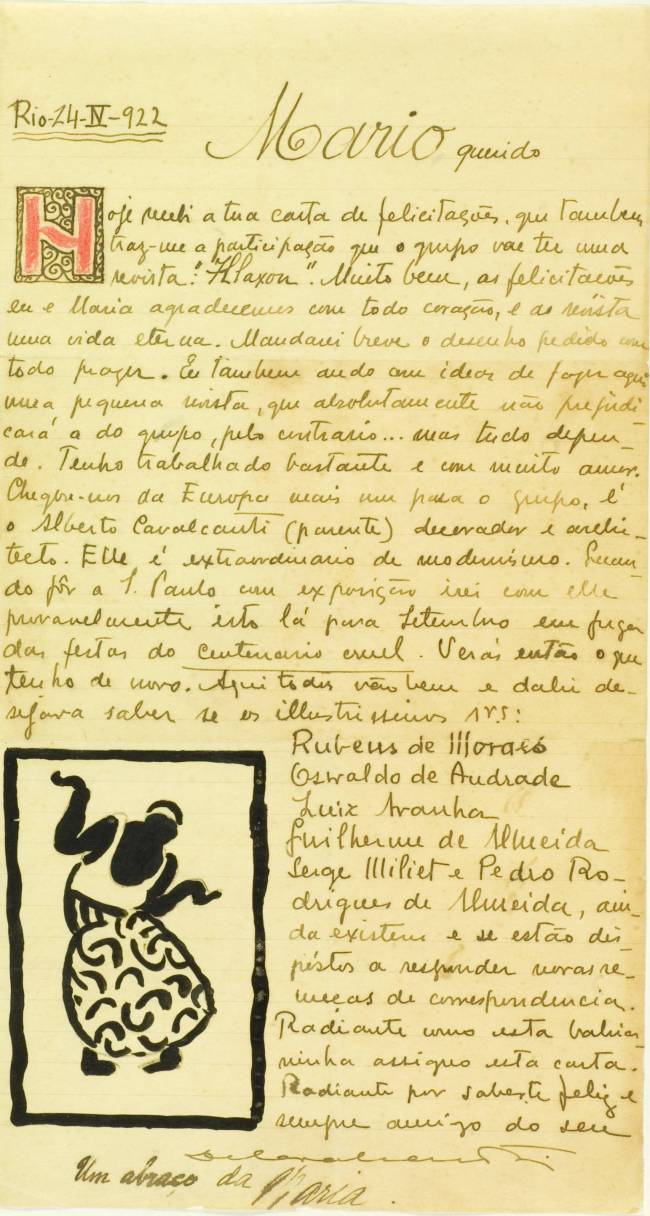 Rio-24-IV-922
Mario querido
Hoje recebi a tua carta de felicitações, que tambem
traz-me a participação que o grupo vae ter uma
revista: "Klaxon". Muito bem, as felicitacões
eu e Maria agradecemos com todo coração, e as revista
uma vida eterna. Mandarei breve o desenho pedido com
todo prazer. Eu tambem ando com ideas de fazer aqui
uma pequena revista, que absolutamente não prejudi-
cará a do grupo, pelo contrario... mas tudo depen-
de. Tenho trabalhado bastante e com muito amor.
Chegou-nos da Europa mais um para o grupo, é
o Alberto Cavalcanti (parente) decorador e archi-
tecto. Elle é extraordinario de modernismo. Quan-
do fôr a S. Paulo com exposição irei com elle
provavelmente isto lá para Setembro em fuga
das festas do centenario cruel. Verás então o que
tenho de novo. Aqui todos vão bem e dahi de-
sejava saber se os illustrissimos srs:
Rubens de Moraes
Oswaldo de Andrade
Luiz Aranha
Guilherme de Almeida
Serge Milliet e Pedro Ro-
drigues de Almeida, ain-
da existem e se estão dis-
póstos a responder novas re-
meças de correspondencia.
Radiante como esta bahia-
ninha assigno esta carta.
Radiante por saber-te feliz e
sempre amigo do seu
Di Cavalcanti
Um abraço da Maria.